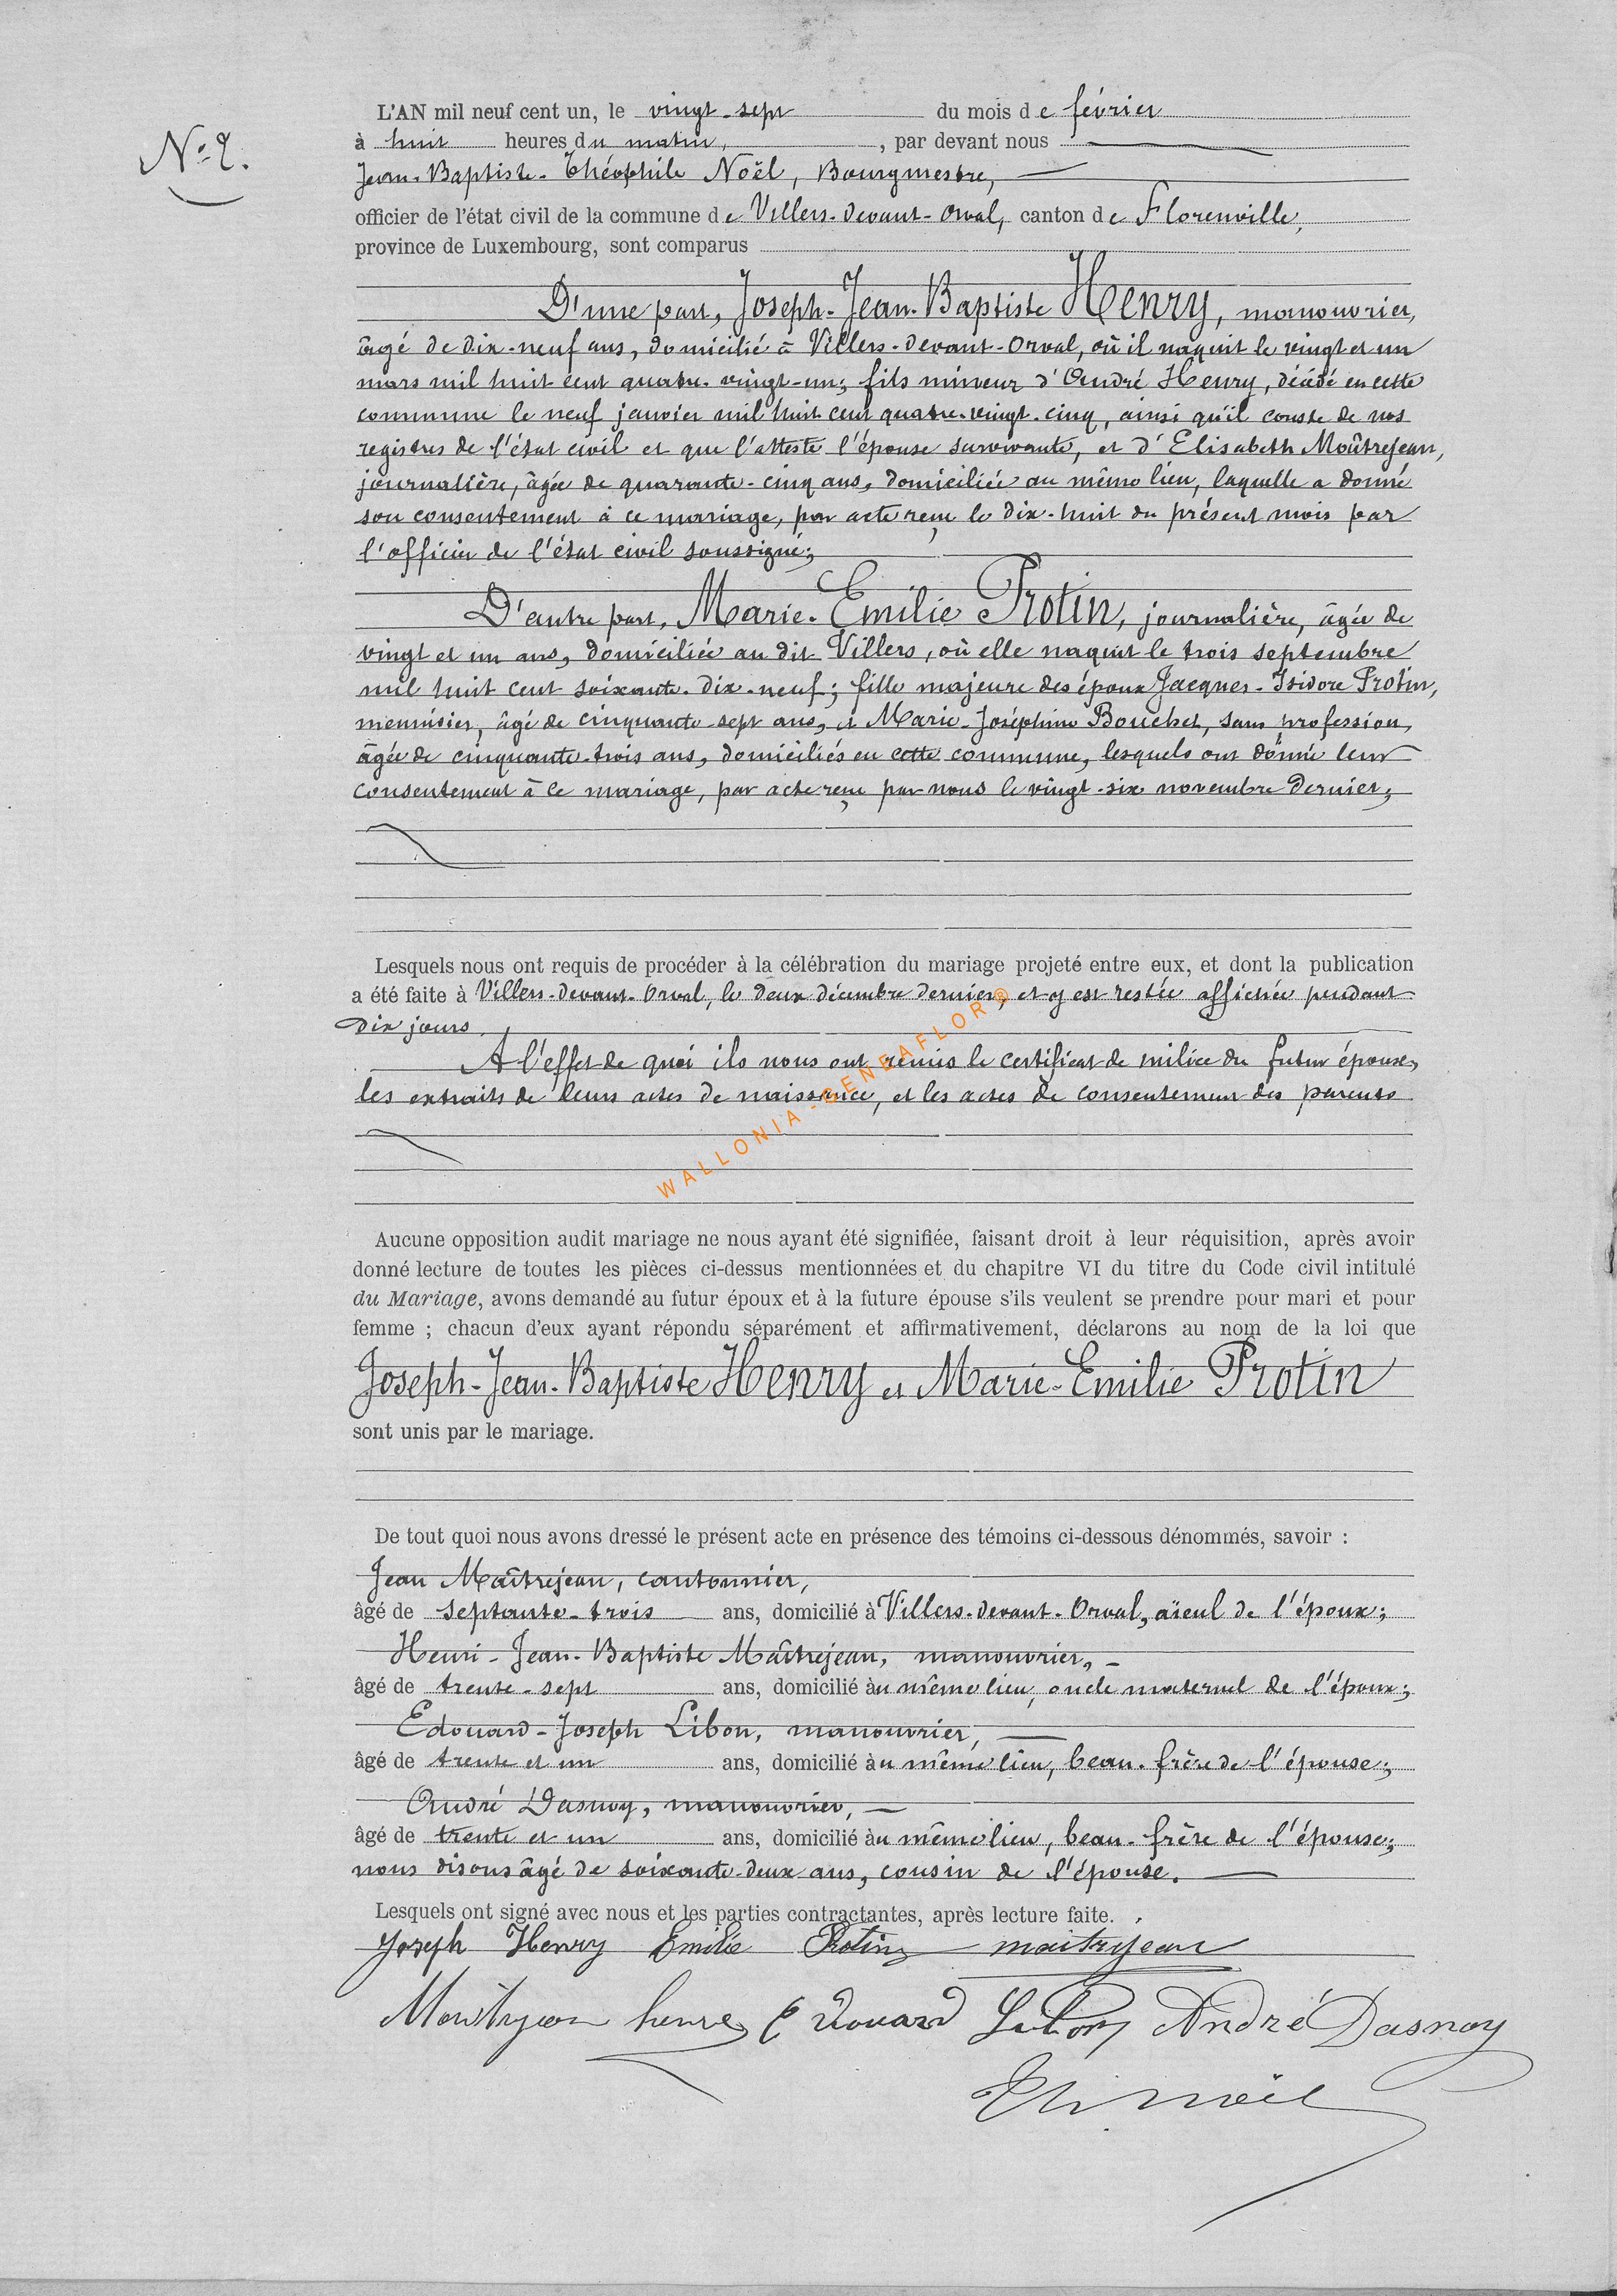 N° 2.
L'AN mil neuf cent un, le vingt-sept du mois de février
à huit heures du matin, , par devant nous
Jean-Baptiste-Théophile Noël, Bourgmestre,
officier de l'état civil de la commune de Villers-devant-Orval, canton de Florenville,
province de Luxembourg, sont comparus
D'une part, Joseph-Jean-Baptiste Henry, manouvrier,
âgé de dix-neuf ans, domicilié à Villers-devant-Orval, où il naquit le vingt et un
mars mil huit cent quatre-vingt-un; fils mineur d'André Henry, décédé en cette
commune le neuf janvier mil huit cent quatre-vingt-cinq, ainsi qu'il conste de nos
registres de l'état civil et que l'atteste l'épouse survivante, et d'Elisabeth Maîtrejean,
journalière, âgée de quarante-cinq ans, domiciliée au même lieu, laquelle a donné
son consentement à ce mariage, par acte reçu le dix-huit du présent mois par
l'officier de l'état civil soussigné;
D'autre part, Marie-Emilie Protin, journalière, âgée de
vingt et un ans, domiciliée au dit Villers, où elle naquit le trois septembre
mil huit cent soixante-dix-neuf; fille majeure des époux Jacques-Isidore Protin,
menuisier, âgé de cinquante-sept ans, et Marie-Joséphine Bouchet, sans profession,
âgée de cinquante-trois ans, domiciliés en cette commune, lesquels ont donné leur
consentement à ce mariage, par acte reçu par nous le vingt-six novembre dernier;
Lesquels nous ont requis de procéder à la célébration du mariage projeté entre eux, et dont la publication
a été faite à Villers-devant-Orval, le deux décembre dernier, et y est restée affichée pendant
dix jours.
A l'effet de quoi ils nous ont remis le certificat de milice du futur époux,
les extraits de leurs actes de naissance, et les actes de consentement des parents
WALLONIA-GENEAFLOR®
Aucune opposition audit mariage ne nous ayant été signifiée, faisant droit à leur réquisition, après avoir
donné lecture de toutes les pièces ci-dessus mentionnées et du chapitre VI du titre du Code civil intitulé
du Mariage, avons demandé au futur époux et à la future épouse s'ils veulent se prendre pour mari et pour
femme ; chacun d'eux ayant répondu séparément et affirmativement, déclarons au nom de la loi que
Joseph-Jean-Baptiste Henry et Marie-Emilie Protin
sont unis par le mariage.
De tout quoi nous avons dressé le présent acte en présence des témoins ci-dessous dénommés, savoir :
Jean Maîtrejean, cantonnier,
âgé de septante-trois ans, domicilié à Villers-devant-Orval, aïeul de l'époux;
Henri-Jean-Baptiste Maîtrejean, manouvrier,
âgé de trente-sept ans, domicilié au même lieu, oncle maternel de l'époux;
Edouard-Joseph Libon, manouvrier,
âgé de trente et un ans, domicilié au même lieu, beau-frère de l'épouse;
André Dasnoy, manouvrier,
âgé de trente et un ans, domicilié au même lieu, beau-frère de l'épouse;
nous disons âgé de soixante-deux ans, cousin de l'épouse.
Lesquels ont signé avec nous et les parties contractantes, après lecture faite.
Joseph Henry Emilie Protin maitrejean
Maitrejean henri Edouard Libon André Dasnoy
Th. Noël